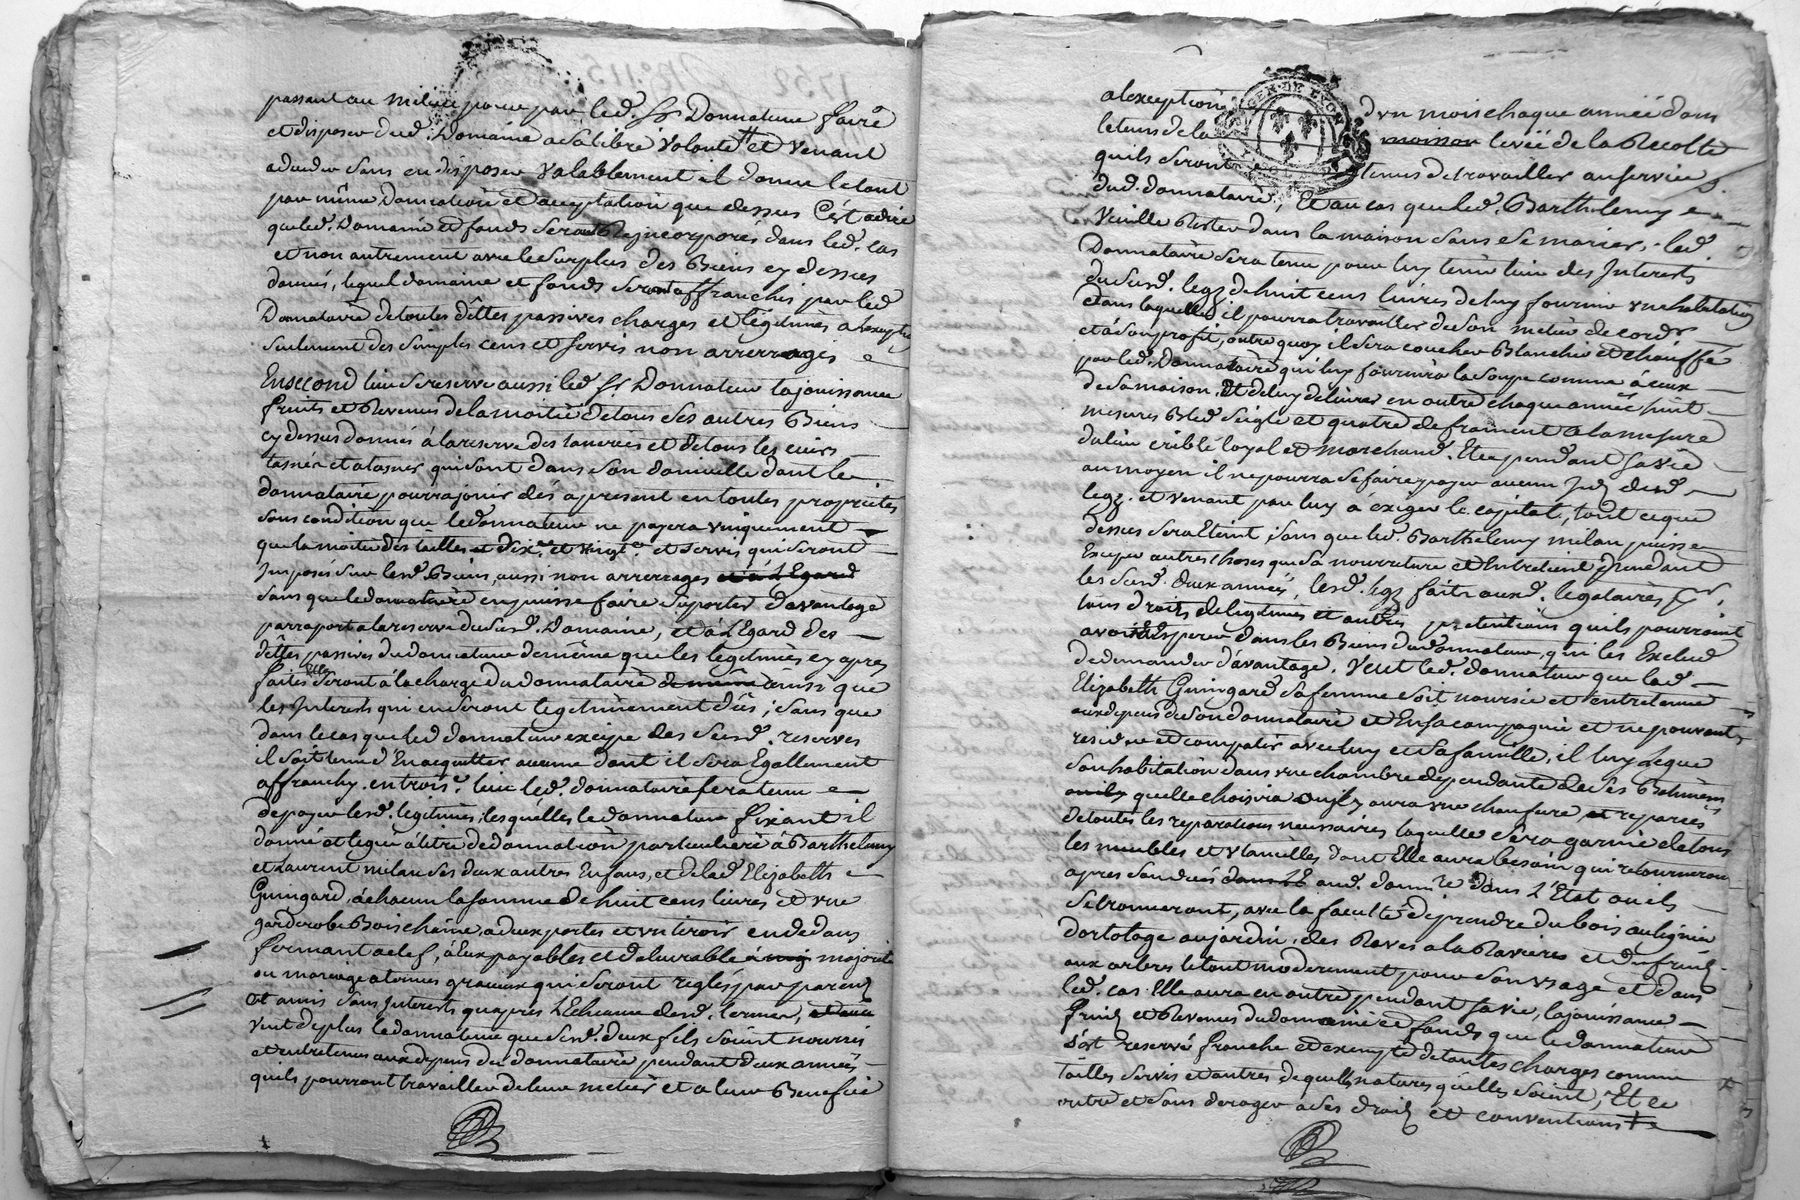 passant au milieu pour par led. Sr. Donnateur faire
et disposer dud. Domaine a sa libre volonté et venant
a deceder sans en disposer valablement il donne le tout
par même Donnation et acceptation que dessus C'est adire
que led. Domaine et fonds seront Reincorporés dans led. cas
et non autrement avec le surplus des Biens cy dessus
donnés, lequel domaine et fonds seront affranchis par led.
Donnataire de toutes dêttes passives charges et légitimes a lexception
seulement des simples cens et servis non arrerragés
En second lieu se reserve aussi led. Sr. Donnateur la jouissance
fruits et Revenus de la moitié de tous ses autres Biens
cy dessus donnés à la reserve des taneries et de tous les cuirs
tannés et a tanner qui sont dans son domicille dont le
donnataire pourra jouir dés apresent en toutes proprietés
sous condition que le donnateur ne payera uniquement
que la moitié des tailles et dixe. et vingte. et servis qui seront
Imposés sur lesd. Biens, aussi non arrerragés et à l'Egard
sans que le donnataire en puisse faire suporter davantage
par raport a la reserve du susd. Domaine, et à l'Egard des
dêttes passives du donnateur de même que les légitimes cy apres
faites elles seront à la charge du donnataire de même ainsi que
les Interests qui en seront legitimement dûs; sans que
dans le cas que led. donnateur excipe des susd. reserves
il soit tenu d'En acquitter aucune dont il sera Egallement
affranchy. en troise. lieu led. donnataire sera tenu
de payer lesd. legitimes; lesquélles le donnateur fixant il
donne et legue à titre de donnation particuliere à Barthelemy
et Laurent milan ses deux autres Enfans, et de lad. Elizabeth
Guingard, à chacun la somme de huit cens livres et une
garderobe Bois chêne, a deux portes et un tiroir en dedans
fermant a clef, à Eux payables et delivrable à majorité
ou mariage a termes gracieux qui seront reglés par parens
et amis sans Interests qu'après l'Echeance desd. termes,
veut de plus le donnateur que sesd. deux fils soient nourris
et entretenus aux depens du donnataire pendant deux années
quils pourront travailler de leur metier et a leur Benefice
a lexception d'un mois chaque année dans
le tems de la moisson levée de la Recolte
quils seront tenus de travailler au service
dud. donnataire, Et au cas que led. Barthelemy
Veuille Rester dans la maison sans se marier, led.
Donnataire sera tenu pour luy tenir lieu des Interests
du susd. legs de huit cens livres de luy fournir une habitation
dans laquelle il pourra travailler de son metier de cordr
et à son profit, outre quoy il sera coucher Blanchi et chauffé
par led. Donnataire qui luy fournira la soupe comme à ceux
de sa maison, Et de luy delivrer en outre chaque année huit
mesures Bled seigle et quatre de froment a la mesure
du lieu criblé loyal et marchand. Et ce pendant sa vie
au moyen il ne pourra se faire payer aucun Ints. desd.
legs. et venant par luy á éxiger le capital, tout ce que
dessus sera Eteint, sans que led. Barthelemy milan puisse
Exciper autres choses que sa nourriture et Entretient pendant
les susd. deux années, lesd. legs faits auxd. legataires pr.
tous droits de legitimes et autres pretentions quils pourroient
avoir et Esperer dans les Biens du donnateur, qui les Exclud
de demander d'avantage. Veut led. donnateur que lad.
Elizabeth Guingard sa femme soit nourrie et entretenue
aux depens de son donnataire et En sa compagnie et ne pouvant
resider et compatir avec luy et sa famille, il luy Legue
son habitation dans une chambre dependante de ses Batimens
quelle choisira ou il y aura une chaufure, et reparée
de toutes les reparations necessaires laquelle sera garnie de tous
les meubles et Utancilles dont Elle aura besoin qui retourneront
apres son decés aud. donnre. dans L'Etat ou ils
se trouveront, avec la faculté de prendre du bois au ligner
d'ortolage au jardin, des Raves a la Raviere et du fruit
aux arbres le tout moderement pour son usage et dans
led. cas Elle aura en outre pendant sa vie, la jouissance
fruits et Revenus du domaine et fonds que le donnateur
s'est reservé franche et exempte de toutes charges comme
tailles servis et autres de quelles natures quélles soient, Et ce
outre et sans deroger a ses droits et conventions
GEN. DE LYON